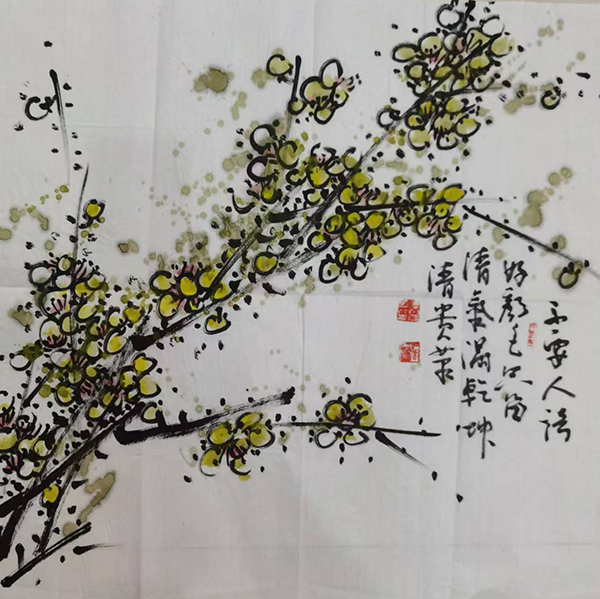 不要人誇
好顏色只留
清氣滿乾坤
清貴葉